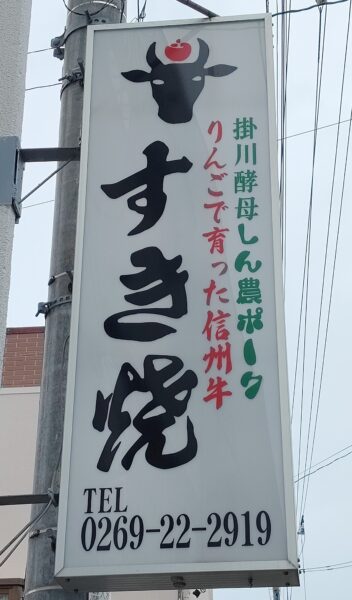 掛川酵母しん農ポーク
りんごで育った信州牛
すき焼
TEL
0269-22-2919